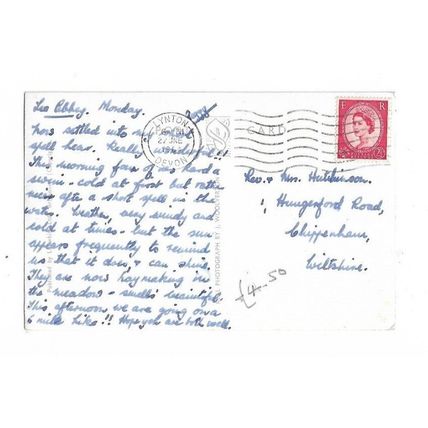 Lee Abbey. Monday.
Now settled into my
spell here. Really wonderful!!
This morning four of us had a
swim - cold at first but rather
nice after a short spell in the
water. Weather, very windy and
cold at times - but the sun
appears frequently to remind
us that it does & can shine.
They are now haymaking in
the meadow - smells beautiful.
This afternoon we are going on a
6 mile hike!! Hope you are both well.
LYNTON
27 JNE
DEVON
CARD
E R
Rev. & Mrs. Hutchinson.
1, Hungerford Road,
Chippenham,
Wiltshire.
£4.50